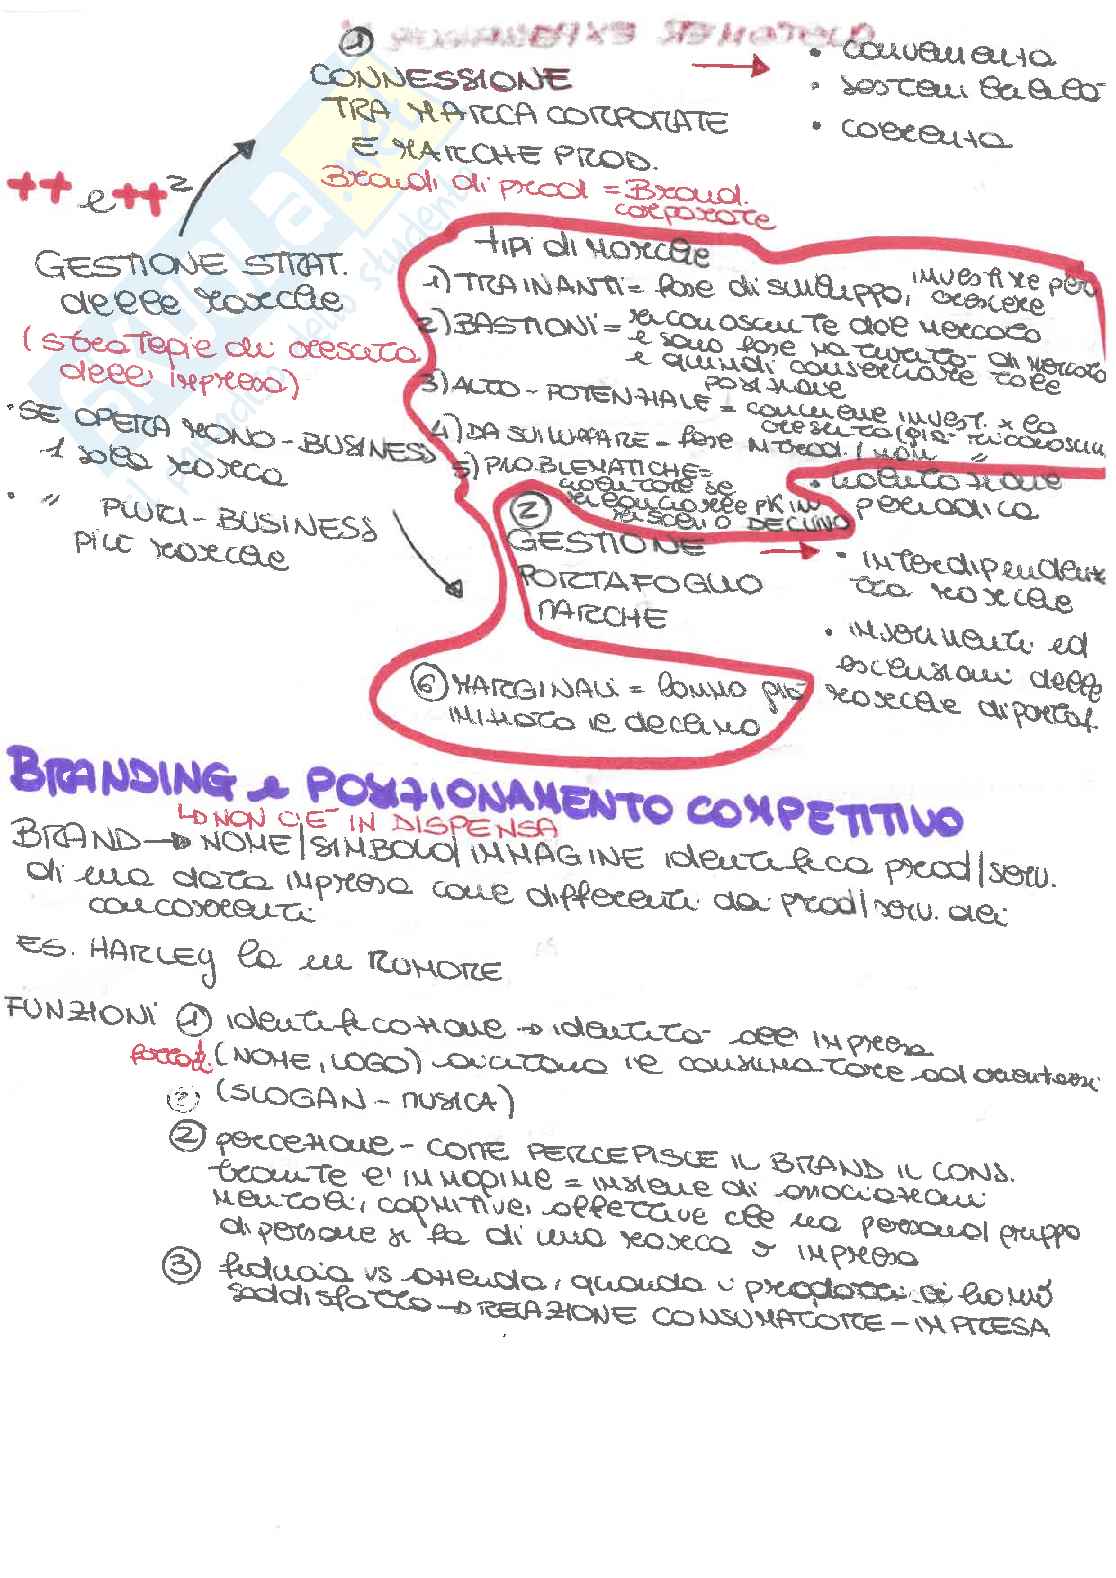 ①
CONNESSIONE
TRA MARCA CORPORATE
E MARCHE PROD.
Brand di prod = Brand
corporate
• convenienza
• sostenibilità
• coerenza
++ e ++²
GESTIONE STRAT.
delle marche
(strategie di crescita
dell'impresa)
• SE OPERA MONO-BUSINESS
1 sola marca
• " PLURI-BUSINESS
più marche
tipi di marche
1) TRAINANTI = fase di sviluppo, investire per
crescere
2) BASTIONI = riconosciute dal mercato
e sono fase maturità di mercato
e quindi conservare tale
posizione
3) ALTO-POTENZIALE = conviene invest. x la
crescita (già riconosciu
4) DA SVILUPPARE = fase introd. / non "
5) PROBLEMATICHE =
valutare se
pk in
DECLINO
• valutazione
periodica
②
GESTIONE
PORTAFOGLIO
MARCHE
• interdipendenz
tra marche
• inserimenti ed
escursioni delle
marche di portaf.
⑥ MARGINALI = hanno già
iniziato il declino
BRANDING e POSIZIONAMENTO COMPETITIVO
↳ NON C'È IN DISPENSA
BRAND → NOME/SIMBOLO/IMMAGINE identifica prod/serv.
di una data impresa come differenti dai prod/serv. dei
concorrenti
ES. HARLEY ha un RUMORE
FUNZIONI ① identificazione → identità dell'impresa
(NOME, LOGO) aiutano il consumatore ad orientarsi
(?) (SLOGAN - MUSICA)
② percezione - COME PERCEPISCE IL BRAND IL CONS.
tramite l'immagine = insieme di associazioni
mentali, cognitive, affettive che una persona/gruppo
di persone si fa di una marca o impresa
③ fiducia vs azienda, quando i prodotti ci hanno
soddisfatto → RELAZIONE CONSUMATORE - IMPRESA